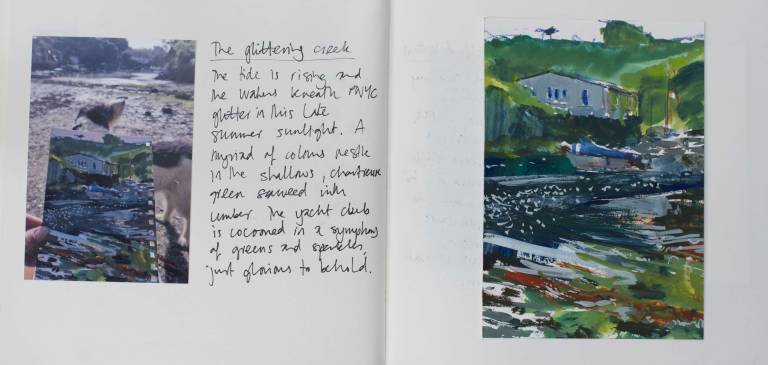 The glittering creek
The tide is rising and
the waters beneath RNYC
glitter in this late
summer sunlight. A
myriad of colours nestle
in the shallows, chartreuse
green seaweed with
umber. The yacht club
is cocooned in a symphony
of greens and sparkles
just glorious to behold.